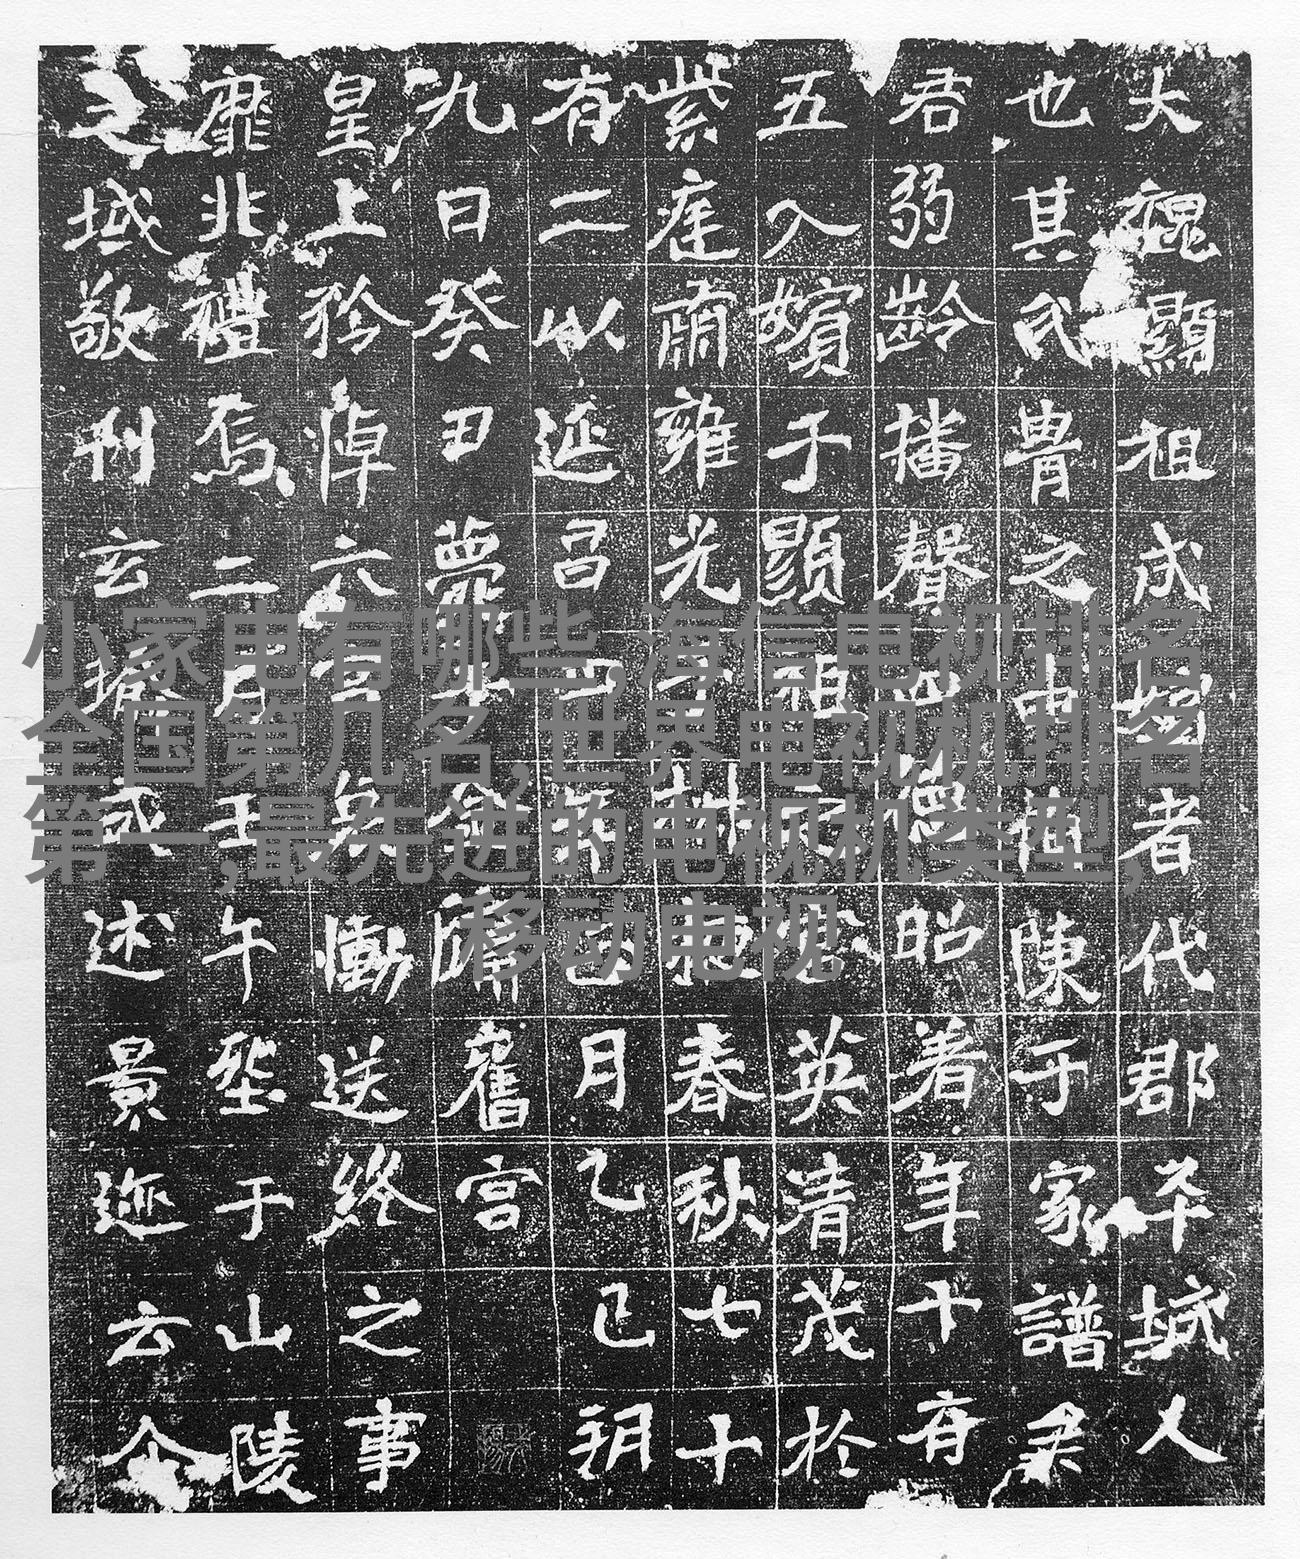 大魏顯祖成嬪者代郡平城人
也其氏胄之中陳于家譜柔
君弱齡播聲昭著年十有
五入嬪于顯祖英清茂於
紫庭肅雍光春秋七十
有二以延昌四月乙巳朔
九日癸丑薨舊宮
皇上矜悼六宮哀慟送終之事
靡非禮焉二月壬午塟于山陵
之域敬刊玄述景迹云
小家电有哪些,海信电视排名
全国第几名,世界电视机排名
第一,最先进的电视机类型,
移动电视